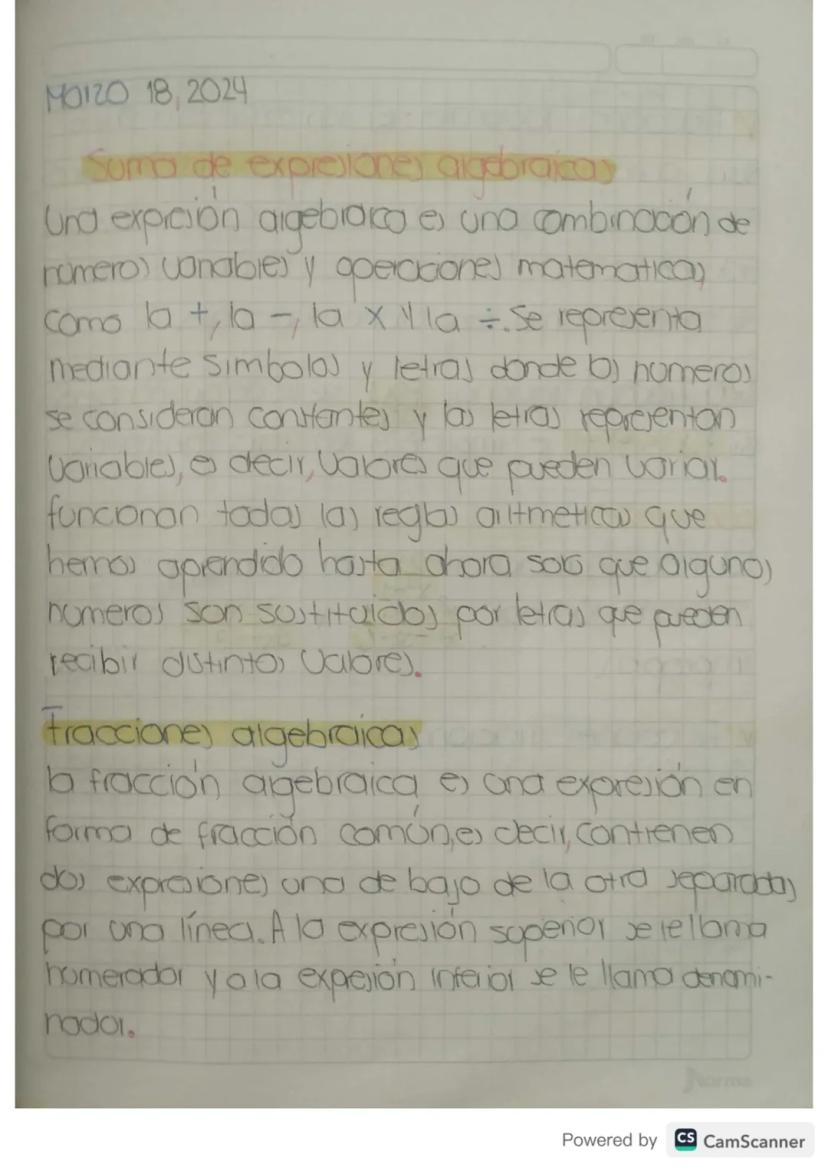 Marzo 18, 2024
Suma de expresiones algebraicas
Una expreción algebraica es una combinación de
números variables y operaciones matematicas
como la +, la -, la x y la ÷. Se representa
mediante simbolos y letras donde los numeros
se consideran constantes y las letras representan
variables, es decir, valores que pueden variar.
funcionan todas las reglas aritmeticas que
hemos aprendido hasta ahora solo que algunos
numeros son sustituidos por letras que pueden
recibir distintos valores.
Fracciones algebraicas
la fracción algebraica es una expresión en
forma de fracción común, es decir, contienen
dos expresiones una de bajo de la otra separadas
por una línea. A la expresión superior se le llama
numerador y a la expresión inferior se le llama denomi-
nador.
Norma
Powered by CS CamScanner